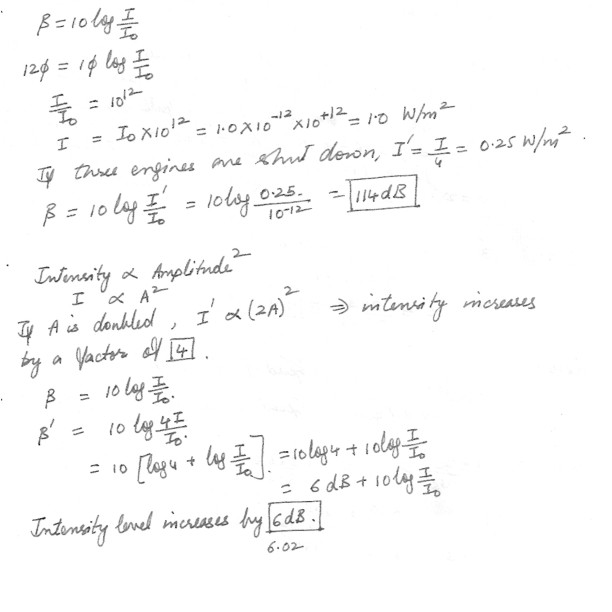 β = 10 log I/I₀
120 = 10 log I/I₀
I/I₀ = 10¹²
I = I₀ × 10¹² = 1.0 × 10⁻¹² × 10⁺¹² = 1.0 W/m²
If three engines are shut down, I' = I/4 = 0.25 W/m².
β = 10 log I'/I₀ = 10 log 0.25/10⁻¹² = 114 dB
Intensity ∝ Amplitude²
I ∝ A²
If A is doubled, I' ∝ (2A)² ⇒ intensity increases
by a factor of 4.
β = 10 log I/I₀.
β' = 10 log 4I/I₀.
= 10 [log 4 + log I/I₀]. = 10 log 4 + 10 log I/I₀
= 6 dB + 10 log I/I₀
Intensity level increases by 6 dB.
6.02